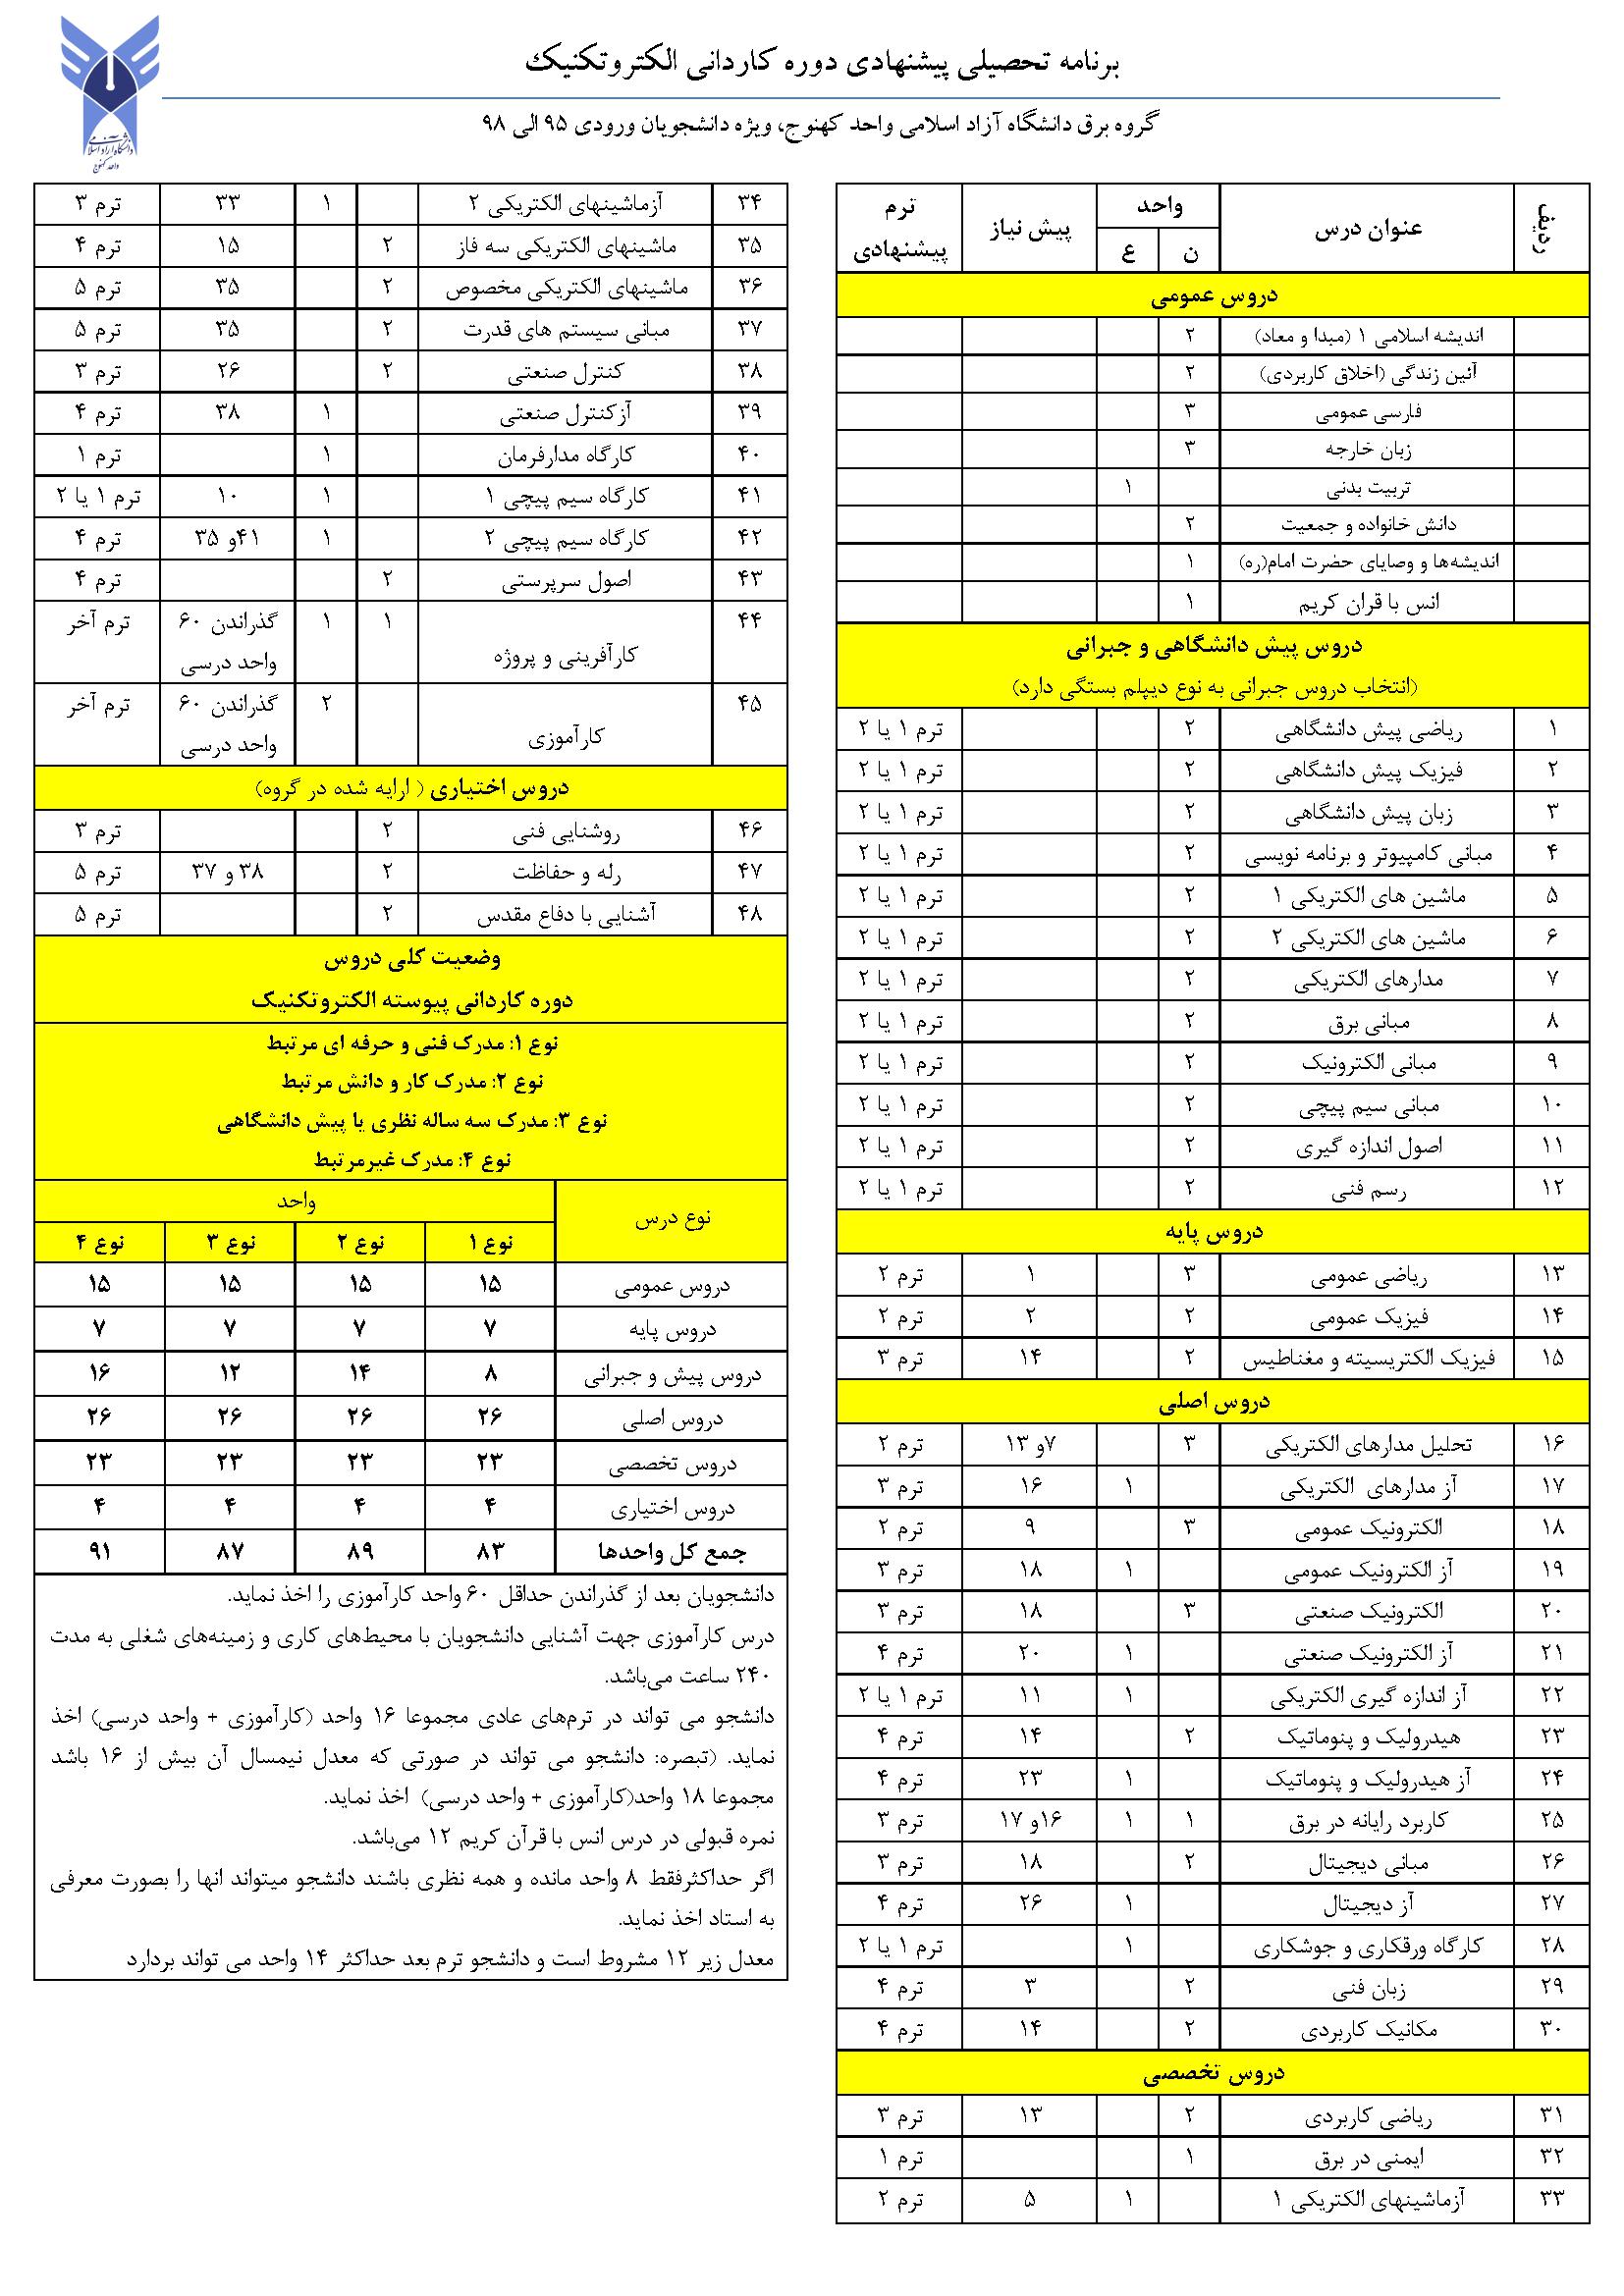 برنامه تحصیلی پیشنهادی دوره کاردانی الکتروتکنیک
گروه برق دانشگاه آزاد اسلامی واحد کهنوج، ویژه دانشجویان ورودی ۹۵ الی ۹۸
دانشگاه آزاد اسلامی
واحد کهنوج
ردیف عنوان درس واحد پیش نیاز ترم پیشنهادی
ن ع
دروس عمومی
اندیشه اسلامی ۱ (مبدا و معاد) ۲
آئین زندگی (اخلاق کاربردی) ۲
فارسی عمومی ۳
زبان خارجه ۳
تربیت بدنی ۱
دانش خانواده و جمعیت ۲
اندیشه‌ها و وصایای حضرت امام(ره) ۱
انس با قران کریم ۱
دروس پیش دانشگاهی و جبرانی
(انتخاب دروس جبرانی به نوع دیپلم بستگی دارد)
۱ ریاضی پیش دانشگاهی ۲ ترم ۱ یا ۲
۲ فیزیک پیش دانشگاهی ۲ ترم ۱ یا ۲
۳ زبان پیش دانشگاهی ۲ ترم ۱ یا ۲
۴ مبانی کامپیوتر و برنامه نویسی ۲ ترم ۱ یا ۲
۵ ماشین های الکتریکی ۱ ۲ ترم ۱ یا ۲
۶ ماشین های الکتریکی ۲ ۲ ترم ۱ یا ۲
۷ مدارهای الکتریکی ۲ ترم ۱ یا ۲
۸ مبانی برق ۲ ترم ۱ یا ۲
۹ مبانی الکترونیک ۲ ترم ۱ یا ۲
۱۰ مبانی سیم پیچی ۲ ترم ۱ یا ۲
۱۱ اصول اندازه گیری ۲ ترم ۱ یا ۲
۱۲ رسم فنی ۲ ترم ۱ یا ۲
دروس پایه
۱۳ ریاضی عمومی ۳ ۱ ترم ۲
۱۴ فیزیک عمومی ۲ ۲ ترم ۲
۱۵ فیزیک الکتریسیته و مغناطیس ۲ ۱۴ ترم ۳
دروس اصلی
۱۶ تحلیل مدارهای الکتریکی ۳ ۷و ۱۳ ترم ۲
۱۷ آز مدارهای الکتریکی ۱ ۱۶ ترم ۳
۱۸ الکترونیک عمومی ۳ ۹ ترم ۲
۱۹ آز الکترونیک عمومی ۱ ۱۸ ترم ۳
۲۰ الکترونیک صنعتی ۳ ۱۸ ترم ۳
۲۱ آز الکترونیک صنعتی ۱ ۲۰ ترم ۴
۲۲ آز اندازه گیری الکتریکی ۱ ۱۱ ترم ۱ یا ۲
۲۳ هیدرولیک و پنوماتیک ۲ ۱۴ ترم ۴
۲۴ آز هیدرولیک و پنوماتیک ۱ ۲۳ ترم ۴
۲۵ کاربرد رایانه در برق ۱ ۱ ۱۶و ۱۷ ترم ۳
۲۶ مبانی دیجیتال ۲ ۱۸ ترم ۳
۲۷ آز دیجیتال ۱ ۲۶ ترم ۴
۲۸ کارگاه ورقکاری و جوشکاری ۱ ترم ۱ یا ۲
۲۹ زبان فنی ۲ ۳ ترم ۴
۳۰ مکانیک کاربردی ۲ ۱۴ ترم ۴
دروس تخصصی
۳۱ ریاضی کاربردی ۲ ۱۳ ترم ۳
۳۲ ایمنی در برق ۱ ترم ۱
۳۳ آزماشینهای الکتریکی ۱ ۱ ۵ ترم ۲
۳۴ آزماشینهای الکتریکی ۲ ۱ ۳۳ ترم ۳
۳۵ ماشینهای الکتریکی سه فاز ۲ ۱۵ ترم ۴
۳۶ ماشینهای الکتریکی مخصوص ۲ ۳۵ ترم ۵
۳۷ مبانی سیستم های قدرت ۲ ۳۵ ترم ۵
۳۸ کنترل صنعتی ۲ ۲۶ ترم ۳
۳۹ آزکنترل صنعتی ۱ ۳۸ ترم ۴
۴۰ کارگاه مدارفرمان ۱ ترم ۱
۴۱ کارگاه سیم پیچی ۱ ۱ ۱۰ ترم ۱ یا ۲
۴۲ کارگاه سیم پیچی ۲ ۱ ۴۱و ۳۵ ترم ۴
۴۳ اصول سرپرستی ۲ ترم ۴
۴۴ کارآفرینی و پروژه ۱ ۱ گذراندن ۶۰ واحد درسی ترم آخر
۴۵ کارآموزی ۲ گذراندن ۶۰ واحد درسی ترم آخر
دروس اختیاری ( ارایه شده در گروه)
۴۶ روشنایی فنی ۲ ترم ۳
۴۷ رله و حفاظت ۲ ۳۸ و ۳۷ ترم ۵
۴۸ آشنایی با دفاع مقدس ۲ ترم ۵
وضعیت کلی دروس
دوره کاردانی پیوسته الکتروتکنیک
نوع ۱: مدرک فنی و حرفه ای مرتبط
نوع ۲: مدرک کار و دانش مرتبط
نوع ۳: مدرک سه ساله نظری یا پیش دانشگاهی
نوع ۴: مدرک غیرمرتبط
نوع درس واحد
نوع ۱ نوع ۲ نوع ۳ نوع ۴
دروس عمومی ۱۵ ۱۵ ۱۵ ۱۵
دروس پایه ۷ ۷ ۷ ۷
دروس پیش و جبرانی ۸ ۱۴ ۱۲ ۱۶
دروس اصلی ۲۶ ۲۶ ۲۶ ۲۶
دروس تخصصی ۲۳ ۲۳ ۲۳ ۲۳
دروس اختیاری ۴ ۴ ۴ ۴
جمع کل واحدها ۸۳ ۸۹ ۸۷ ۹۱
دانشجویان بعد از گذراندن حداقل ۶۰ واحد کارآموزی را اخذ نماید.
درس کارآموزی جهت آشنایی دانشجویان با محیط‌های کاری و زمینه‌های شغلی به مدت
۲۴۰ ساعت می‌باشد.
دانشجو می تواند در ترم‌های عادی مجموعا ۱۶ واحد (کارآموزی + واحد درسی) اخذ
نماید. (تبصره: دانشجو می تواند در صورتی که معدل نیمسال آن بیش از ۱۶ باشد
مجموعا ۱۸ واحد(کارآموزی + واحد درسی) اخذ نماید.
نمره قبولی در درس انس با قرآن کریم ۱۲ می‌باشد.
اگر حداکثرفقط ۸ واحد مانده و همه نظری باشند دانشجو میتواند انها را بصورت معرفی
به استاد اخذ نماید.
معدل زیر ۱۲ مشروط است و دانشجو ترم بعد حداکثر ۱۴ واحد می تواند بردارد